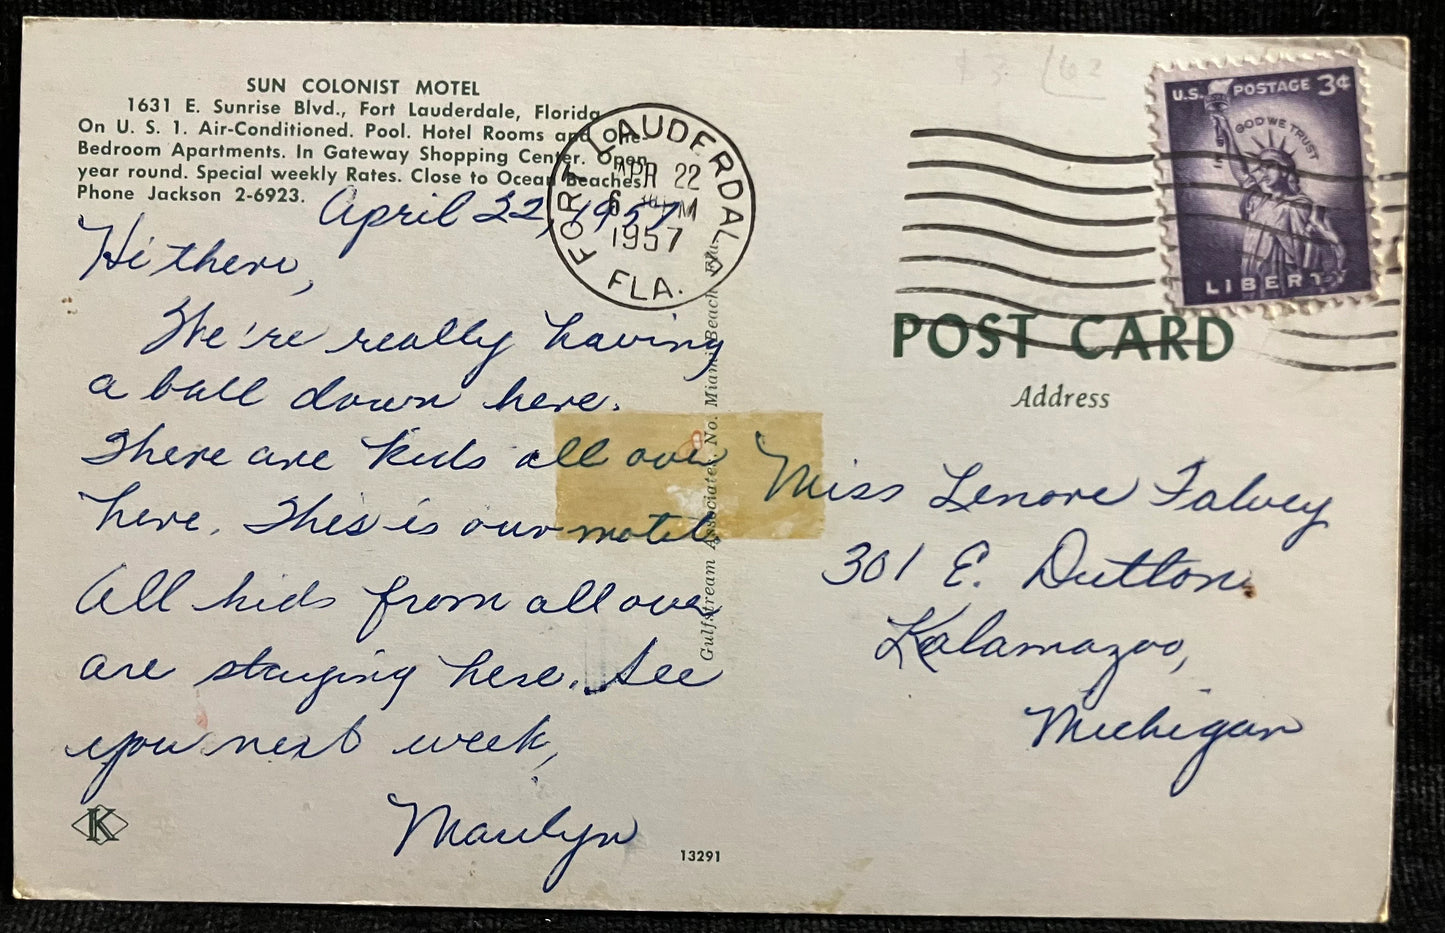 SUN COLONIST MOTEL
1631 E. Sunrise Blvd., Fort Lauderdale, Florida
On U. S. 1. Air-Conditioned. Pool. Hotel Rooms and One-
Bedroom Apartments. In Gateway Shopping Center. Open
year round. Special weekly Rates. Close to Ocean Beaches.
Phone Jackson 2-6923.
April 22, 1957
Hi there,
We're really having
a ball down here.
There are kids all over
here. This is our motel.
All kids from all over
are staying here. See
you next week,
Marilyn
K
13291
Gulfstream Associates, No. Miami Beach, Fla.
FORT LAUDERDALE
APR 22
6 PM
1957
FLA.
$3 62
U.S. POSTAGE 3¢
IN GOD WE TRUST
LIBERTY
POST CARD
Address
Miss Lenore Falvey
301 E. Dutton
Kalamazoo,
Michigan